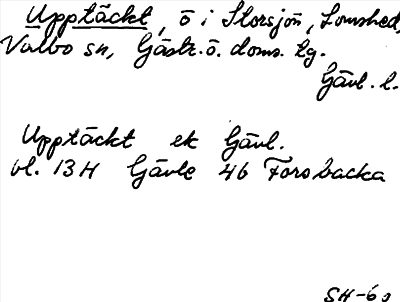 Upptäckt, ö i Storsjön, Lomshed,
Valbo sn, Gästr. ö. doms. tg.
Gävl. l.
Upptäckt ek Gävl.
bl. 13H Gävle 46 Forsbacka
SH-60